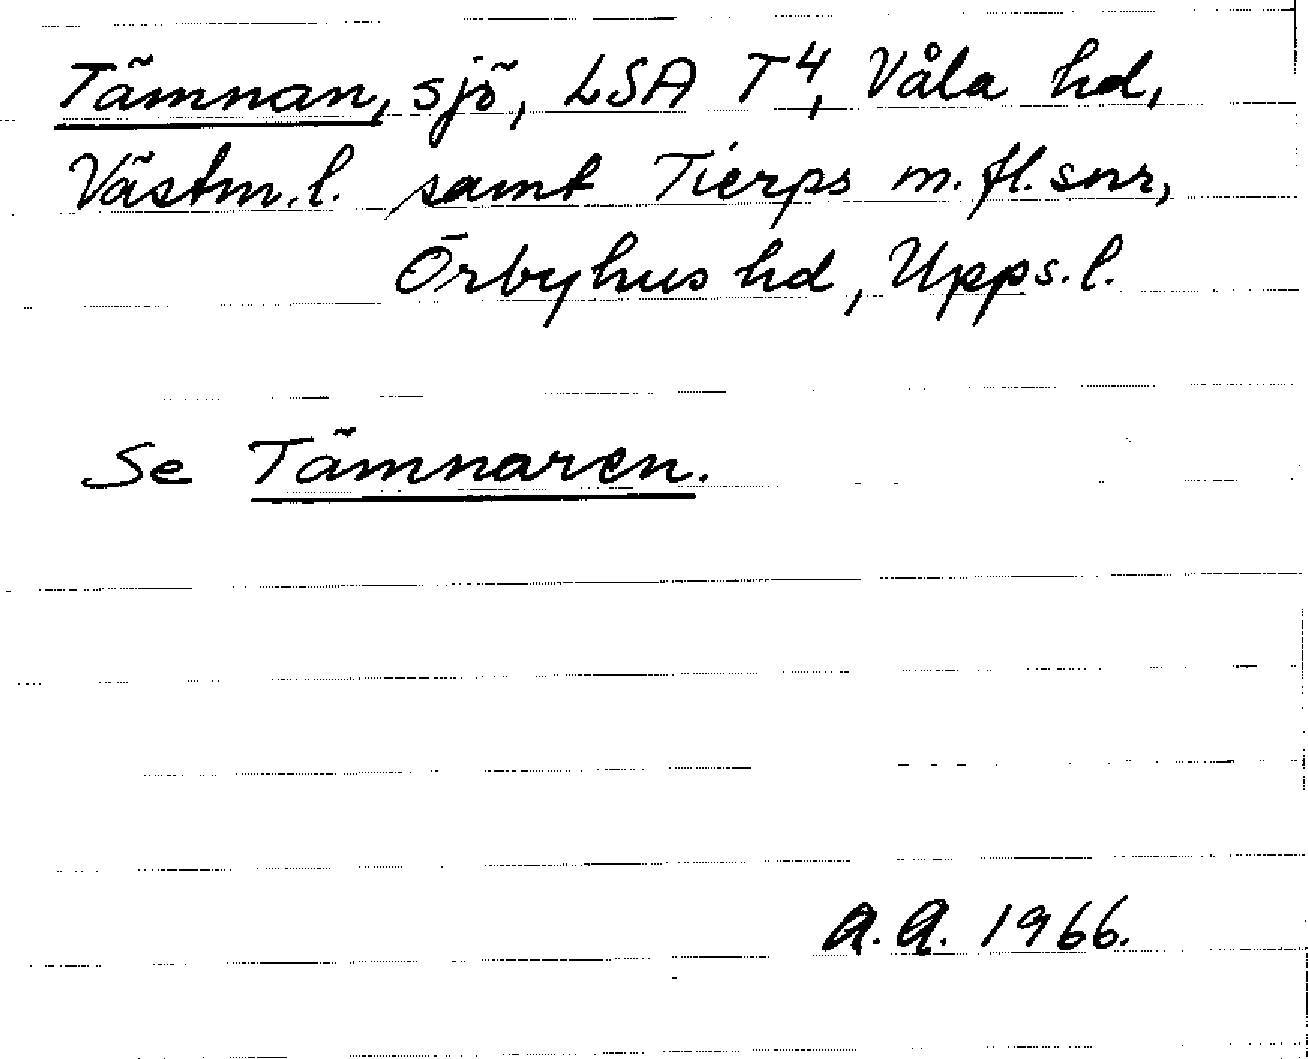 Tämnan, sjö, LSA T4, Våla hd,
Västm.l. samt Tierps m.fl.snr,
Örbyhus hd, Upps.l.
Se Tämnaren.
A.A. 1966.